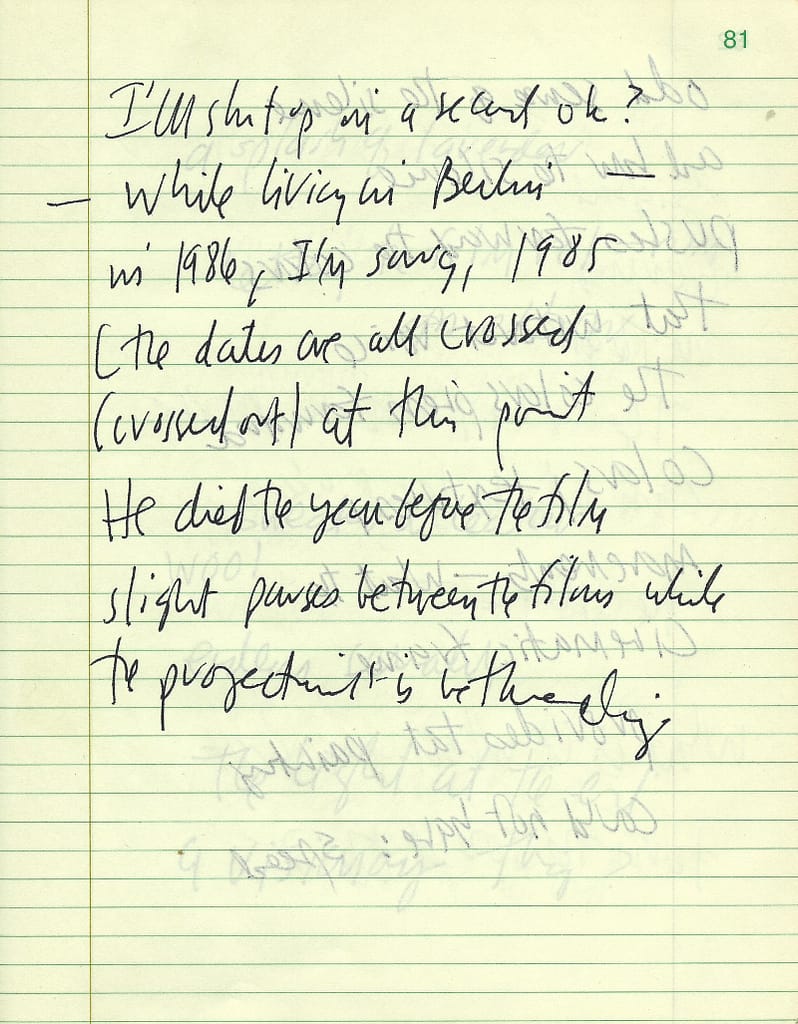 81
I'll shut up in a second ok?
— while living in Berlin —
in 1986, I'm sorry, 1985
(the dates are all crossed
(crossed out) at this point
He died the year before the film
slight pauses between the films while
the projectionist is rethreading